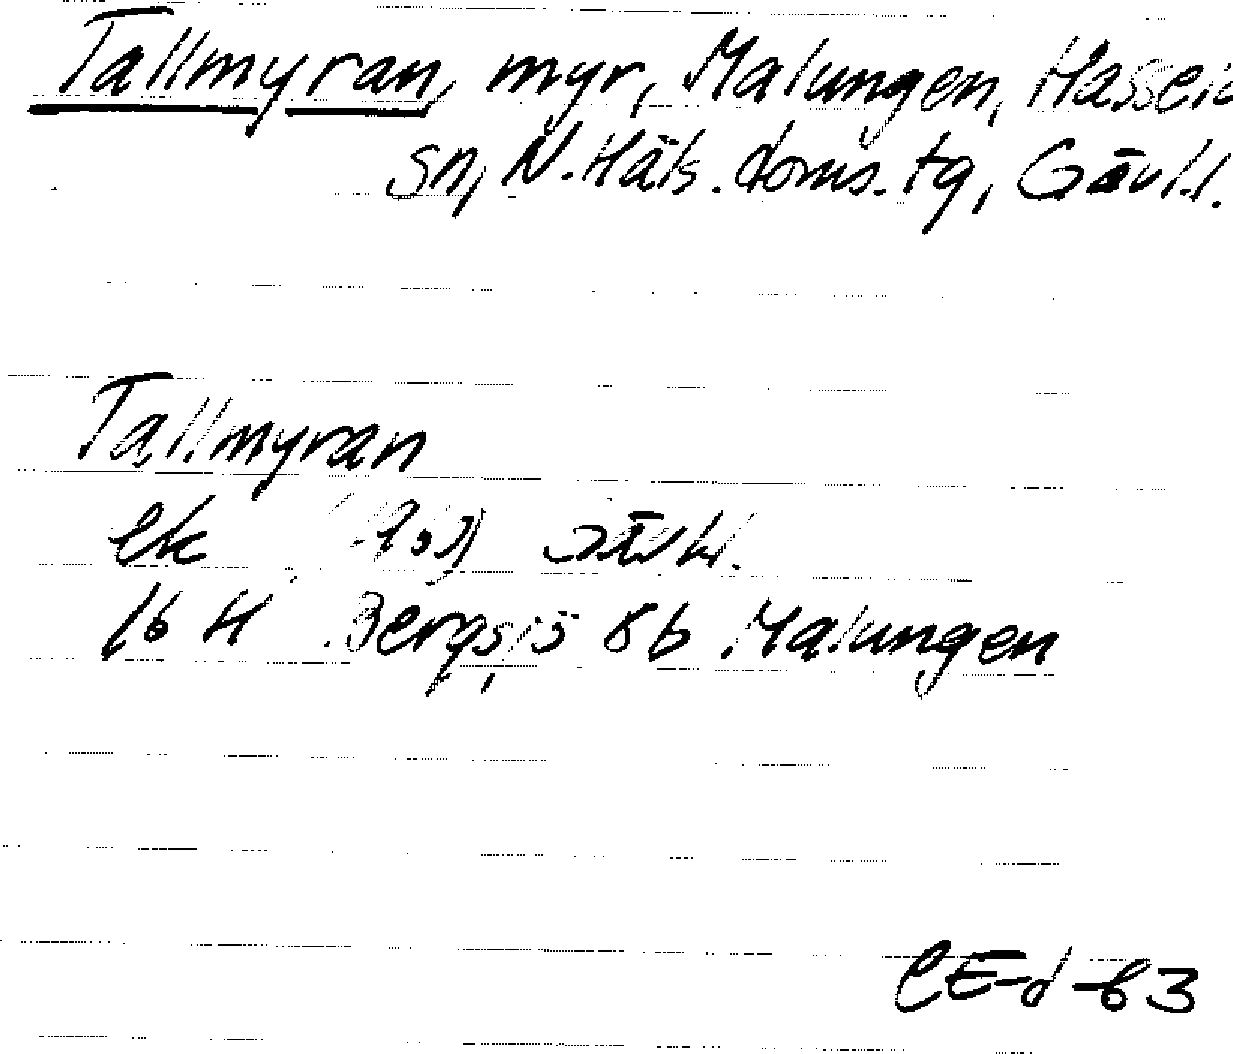 Tallmyran, myr, Malungen, Hassela
sn, N. Häls. doms. tg, Gävl.
Tallmyran
ek Gävl.
16 H Bergsjö 8b Malungen